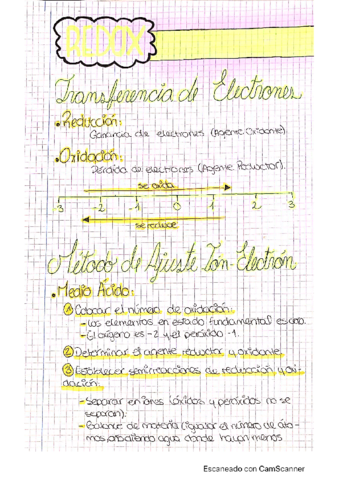 REDOX
Transferencia de Electrones
• Reducción:
Ganancia de electrones (Agente Oxidante).
• Oxidación:
Pérdida de electrones (Agente Reductor).
se oxida
-3 -2 -1 1 2 3
se reduce
Método de Ajuste Ion-Electrón
• Medio Ácido:
① Colocar el número de oxidación.
- Los elementos en estado fundamental es cero.
- El oxígeno es -2 y el peróxido -1.
② Determinar el agente reductor y oxidante.
③ Establecer semirreacciones de reducción y oxi-
dación.
- Separar en iones (óxidos y peróxidos no se
separan).
- Balance de materia (igualar el número de áto-
mos añadiendo agua donde hayan menos
Escaneado con CamScanner